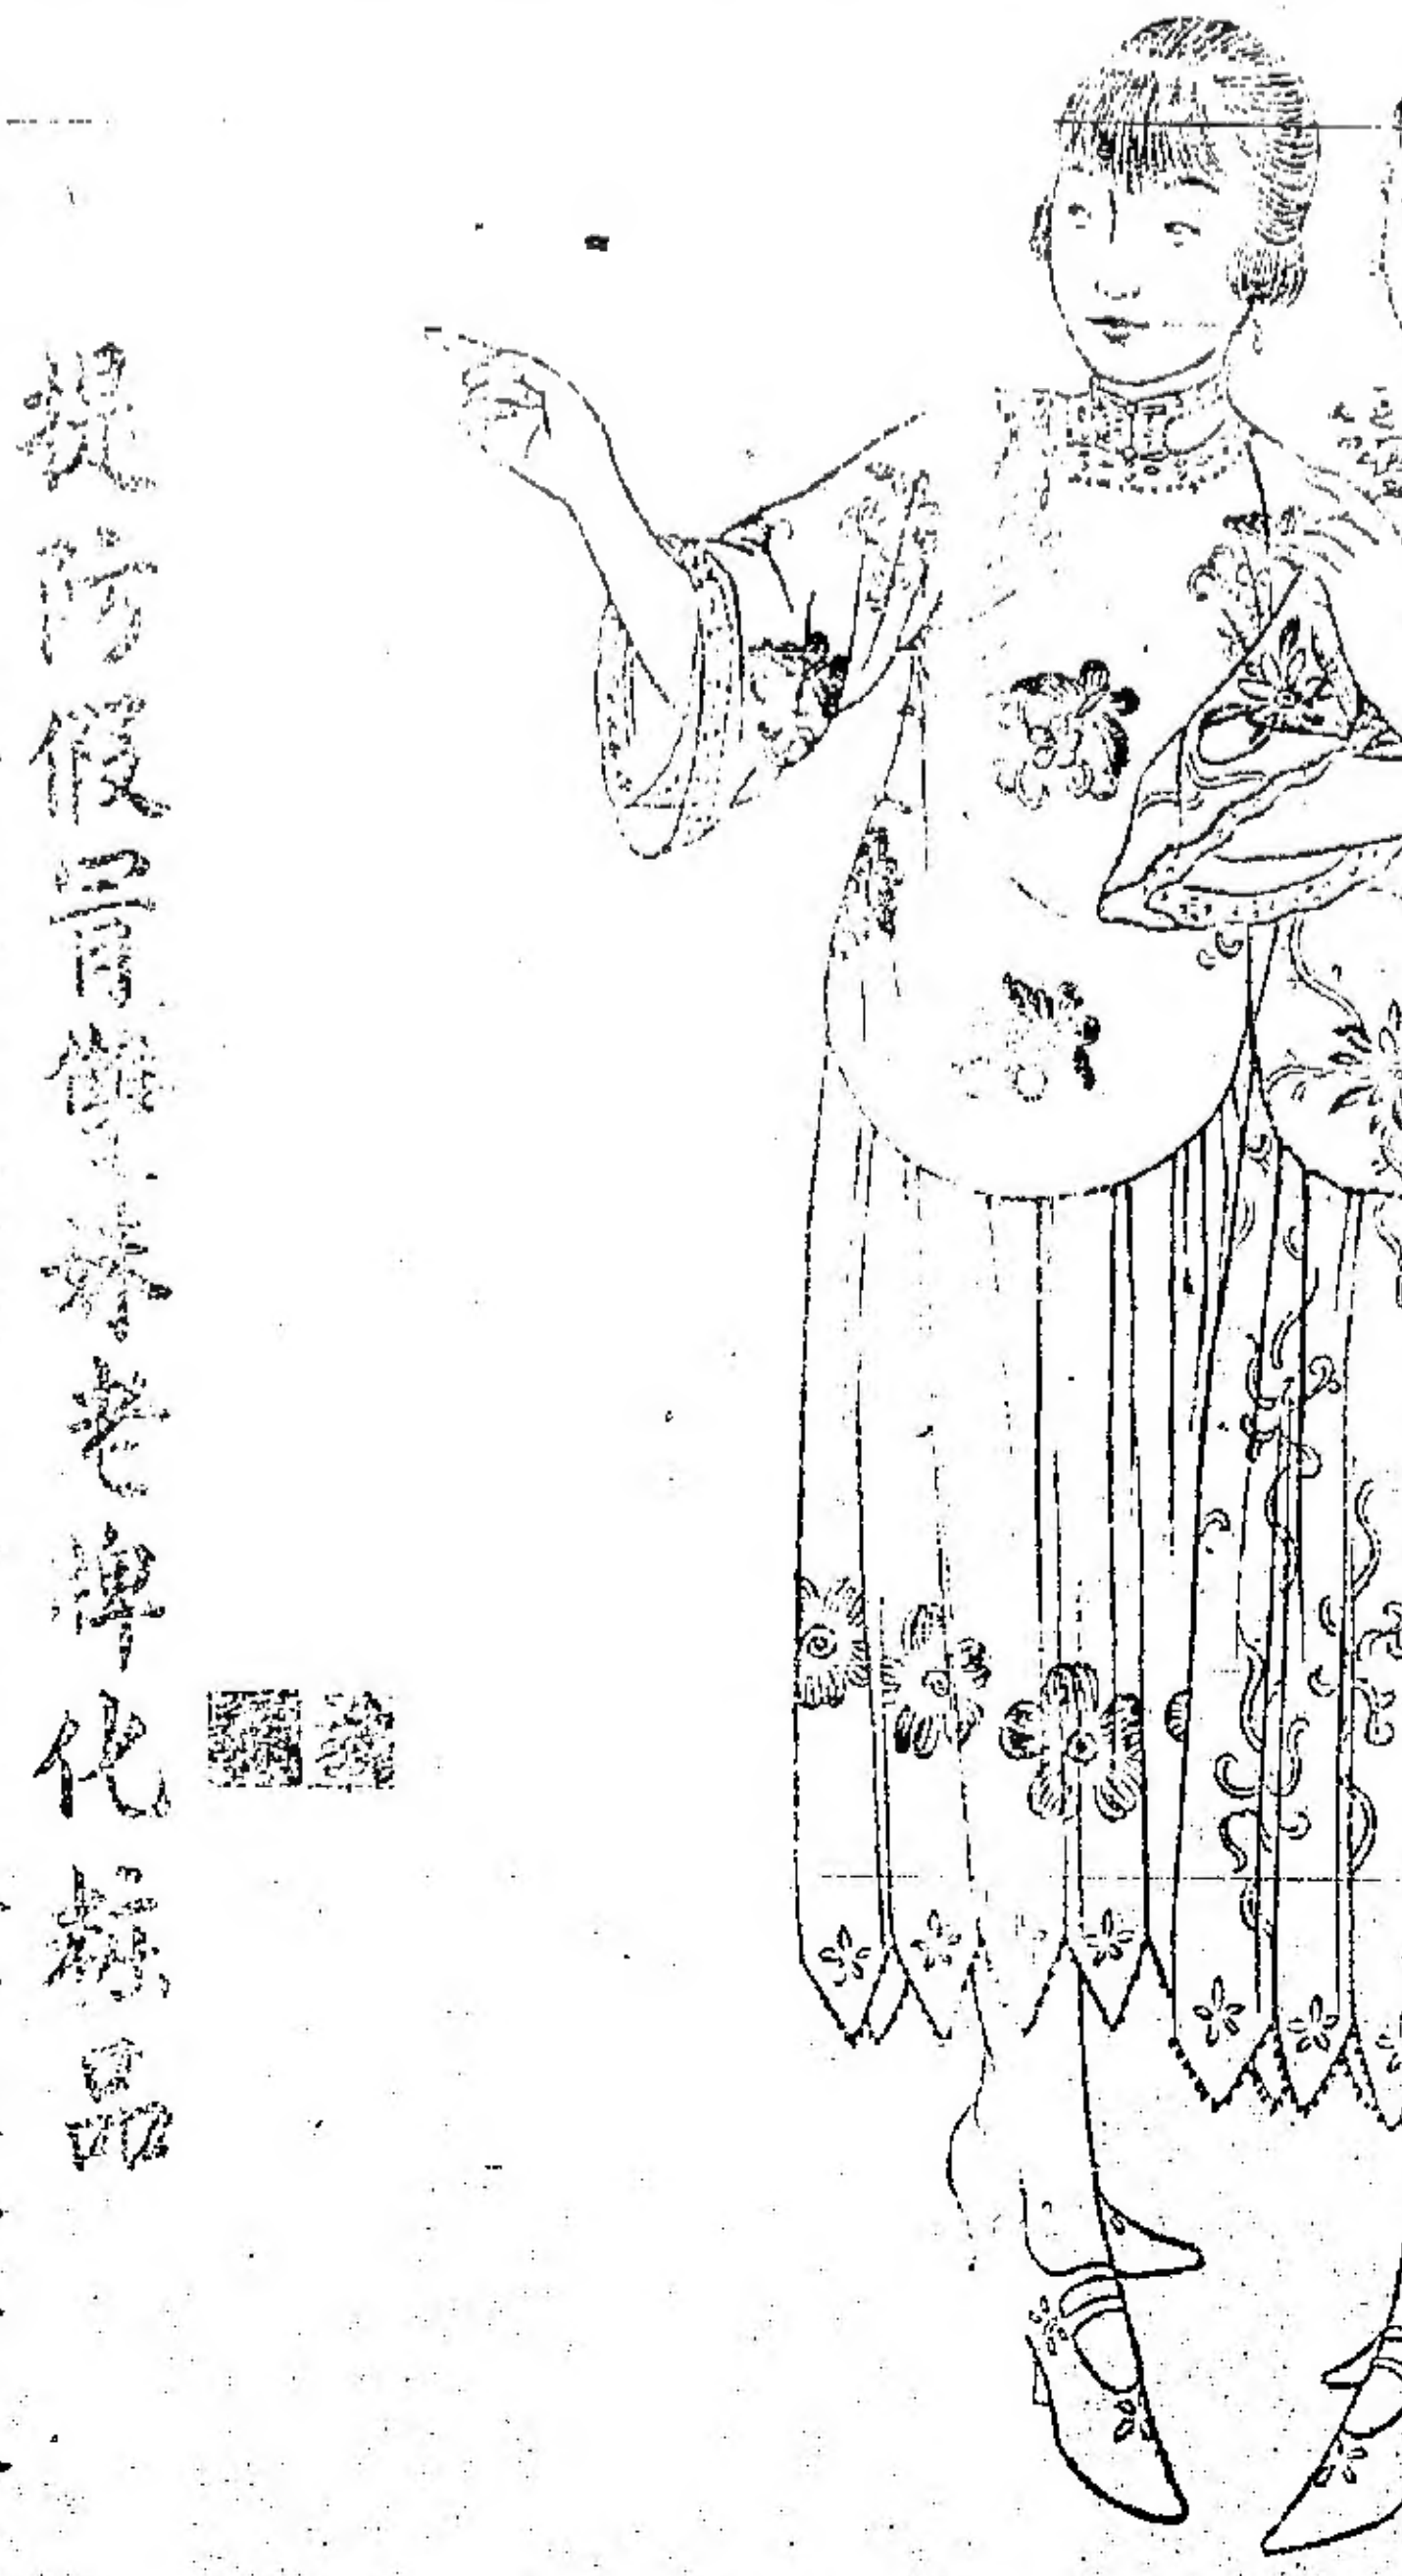 提防假冒雙妹老牌化粧品